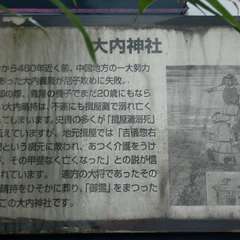 大内神社
から450年近く前、中国地方の一大勢力
あった大内義隆が尼子攻めに失敗。
の際、義隆の養子でまだ20歳にもなら
い大内晴持は、不運にも揖屋灘で溺れ亡く
てしまいます。史書の多くが「揖屋灘溺死」
伝えていますが、地元揖屋では「吉儀惣右
」という漁元に救われ、あつく介護をうけ
、その甲斐なく亡くなった」との説が信
られています。 遠方の大将であったその
晴持をひそかに葬り、「御霊」をまつった
この大内神社です。